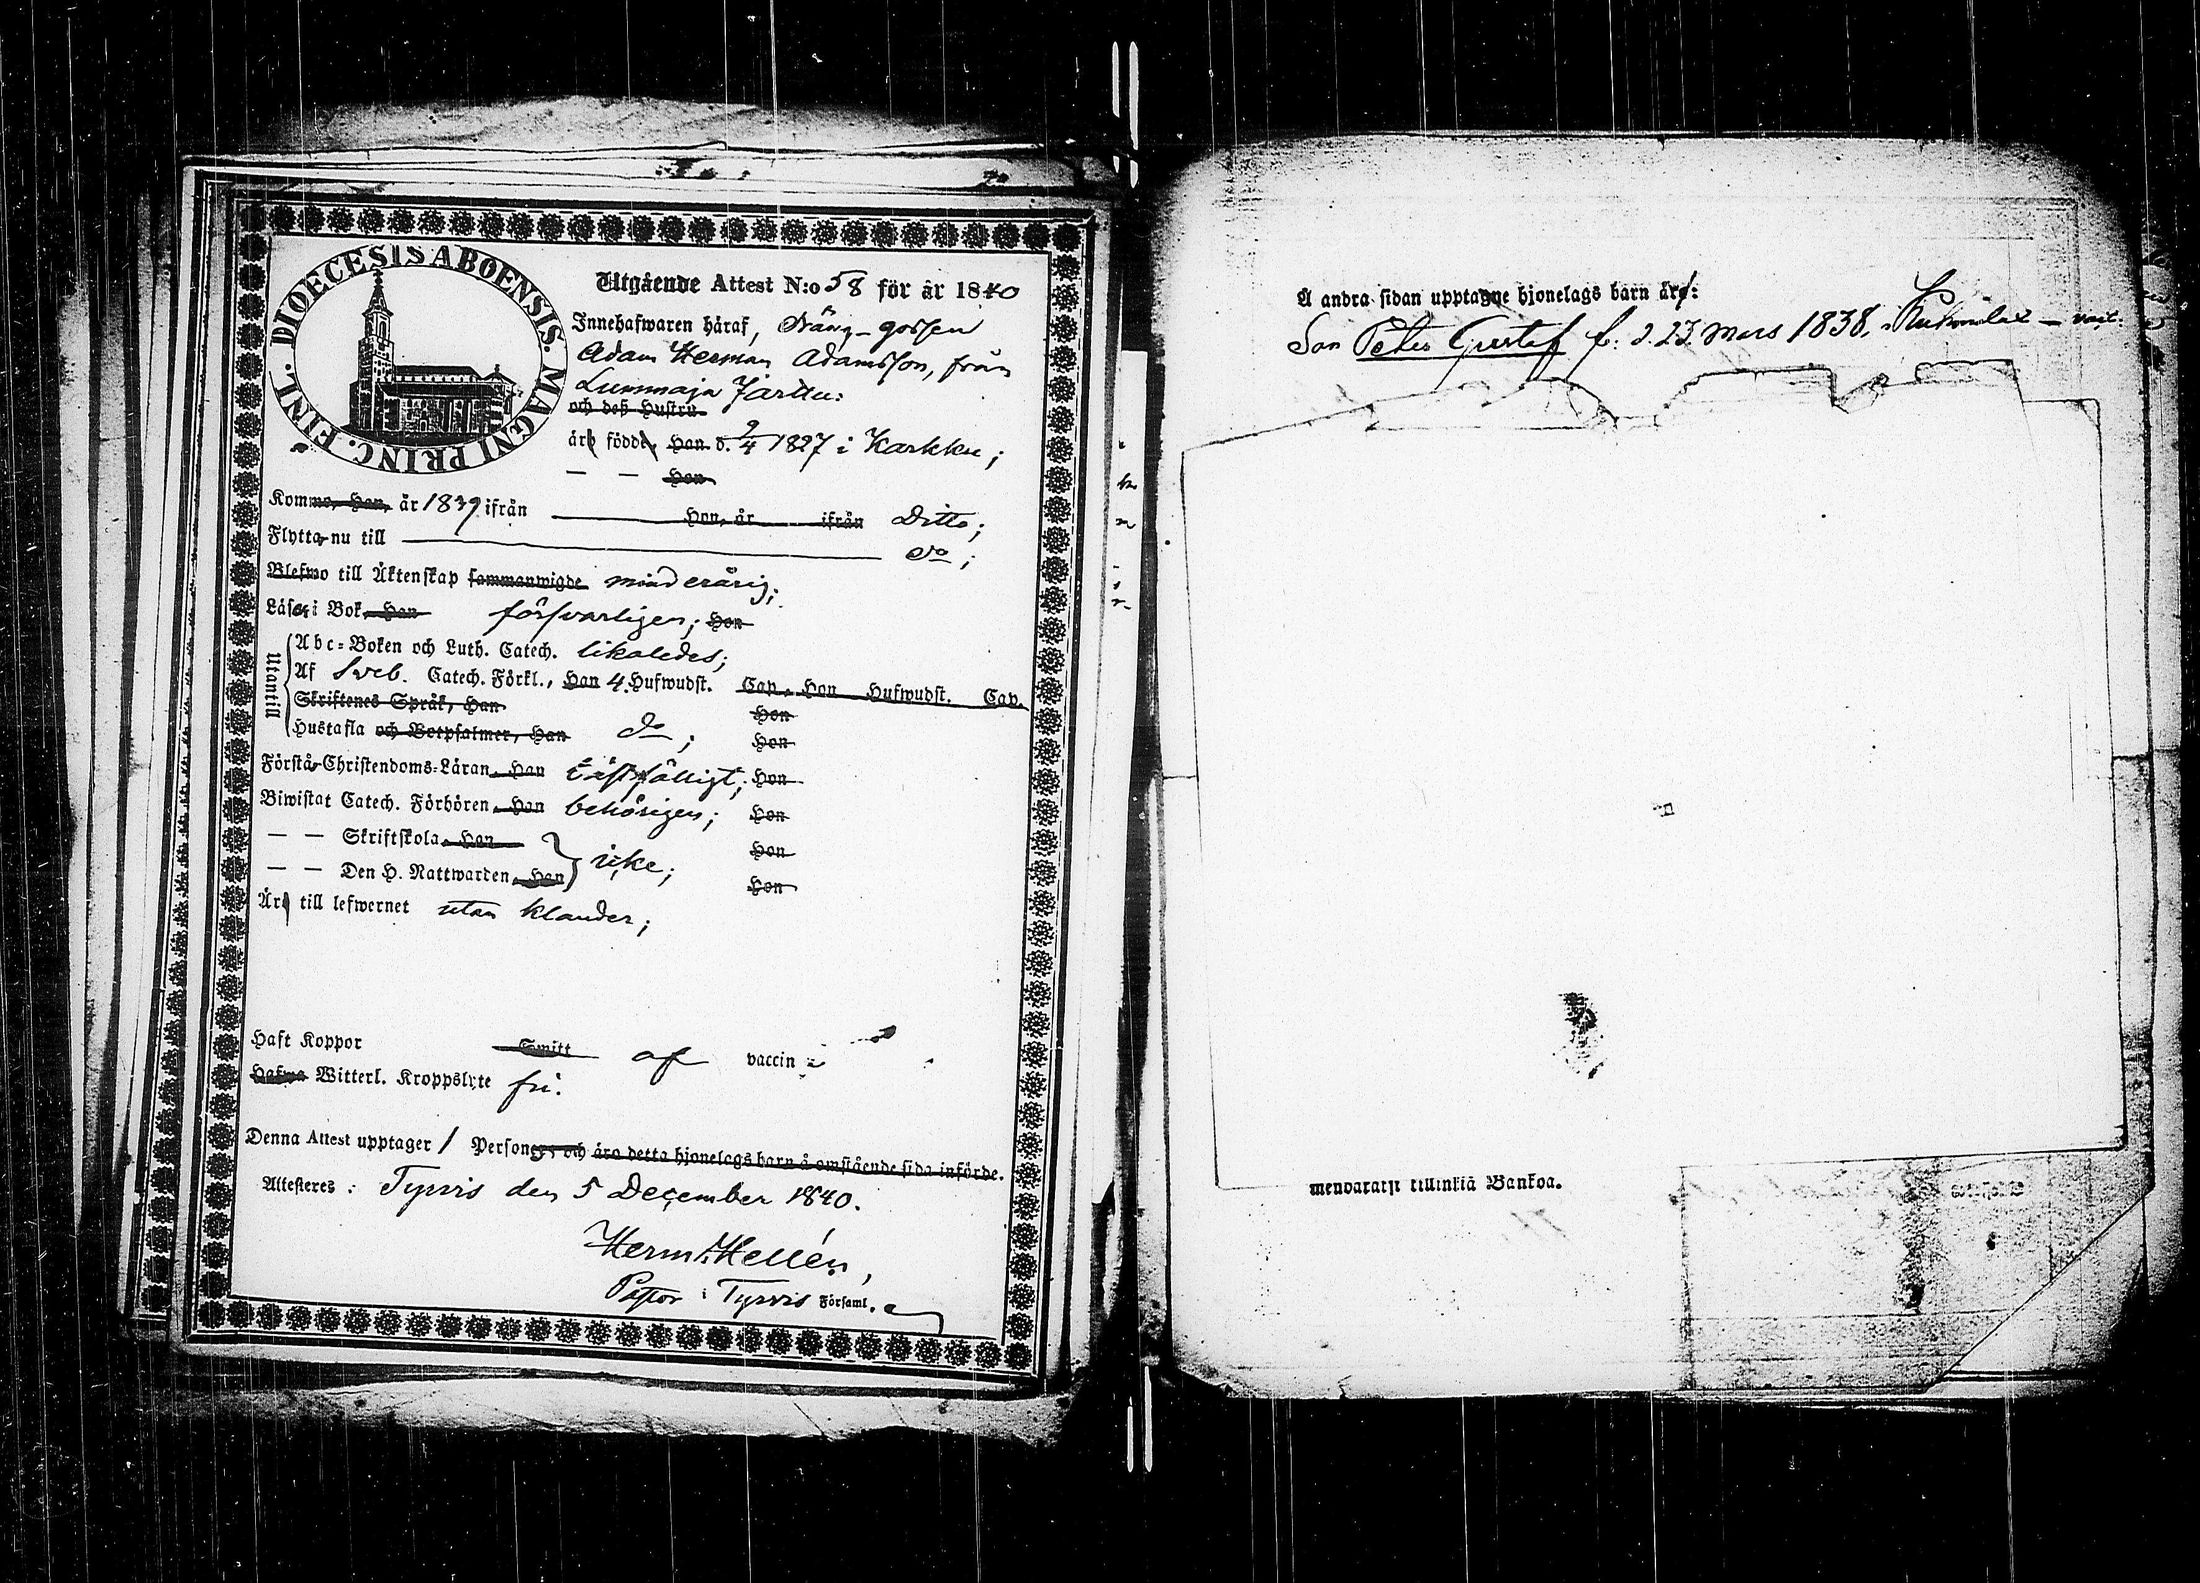 DIOECESIS ABOENSIS. MAGNI PRINC. FINL.
Utgående Attest N:o 58 för år 1840
Innehafwaren häraf, Dräng-gossen
Adam Herman Adamsson, från
Lummaja Jarttu:
och deß Hustru
äro födde, Han d. 9/4 1827 i Karkku;
— — Hon
Kommo, Han, år 1839 ifrån Hon, år ifrån Ditto;
Flytta nu till do;
Blefwo till Äktenskap sammanwigde minderårig;
Läser i Bok, Han försvarligen; Hon
Utantill
Abc-Boken och Luth. Catech. likaledes;
Af Sveb. Catech. Förkl., Han 4 Hufwudst. Cap., Hon Hufwudst. Cap.
Skriftenes Språk, Han Hon
Hustafla och Botpsalmer, Han do; Hon
Förstå Christendoms-Läran, Han Hon
Biwistat Catech. Förhören, Han behörigen; Hon
— — Skriftskola, Han Hon
— — Den H. Nattwarden, Han icke; Hon
Äro till lefwernet utan klander;
Haft Koppor Smitt af vaccin
Hafwa Witterl. Kroppslyte fri.
Denna Attest upptager 1 Personer, och äro detta hjonelags barn å omstående sida införde.
Attesteres: Tyrvis den 5 December 1840.
Herm. Hellén,
Pastor i Tyrvis Församl.
Å andra sidan upptagne hjonelags barn äro:
Son Peter Gustaf f. d. 23 Mars 1838, i — vacc.
mendaratzi tillinkiä Bankoa.